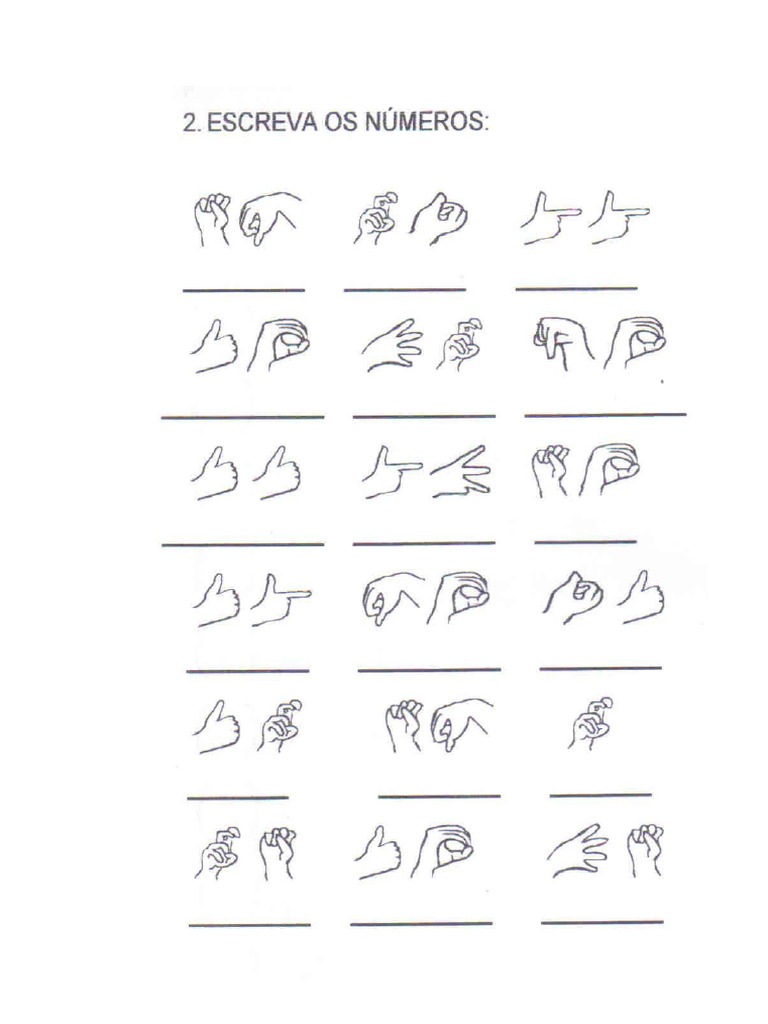 2. ESCREVA OS NÚMEROS: